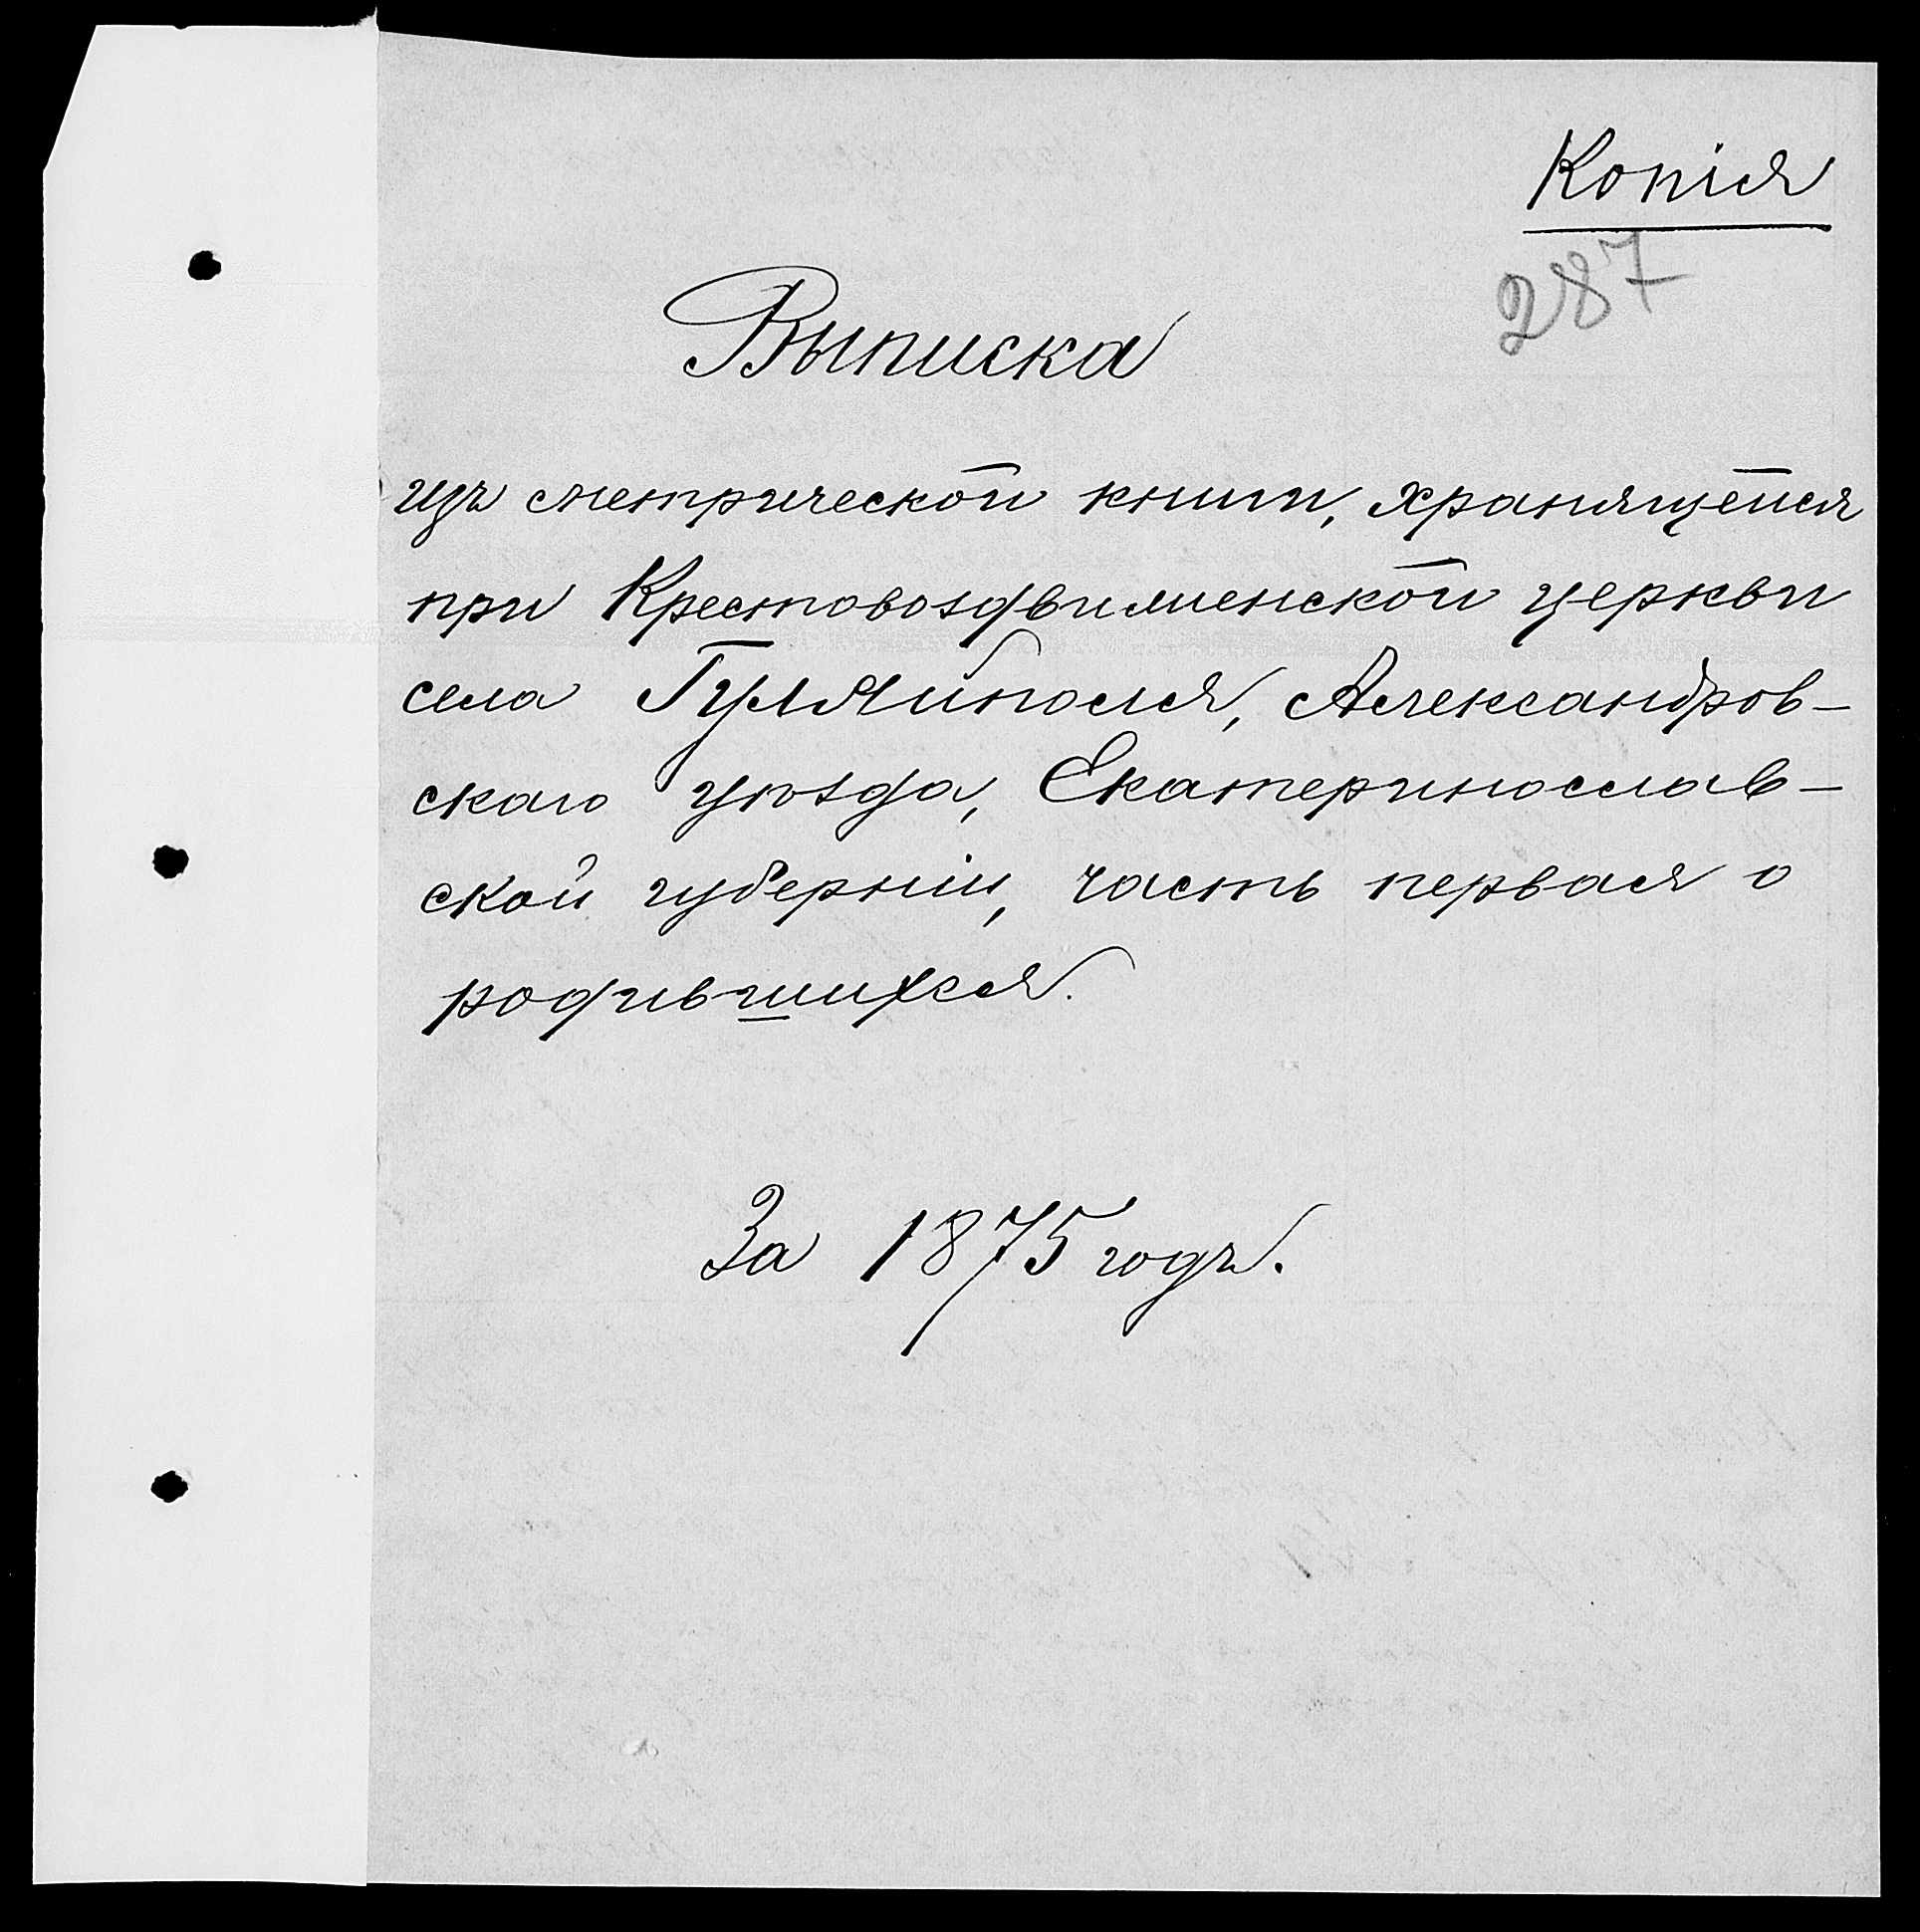 Копія
287
Выписка
изъ метрической книги, хранящейся
при Крестовоздвиженской церкви
села Гуляйполя, Александров-
скаго уѣзда, Екатеринослав-
ской губерніи, часть первая о
родившихся.
За 1875 годъ.